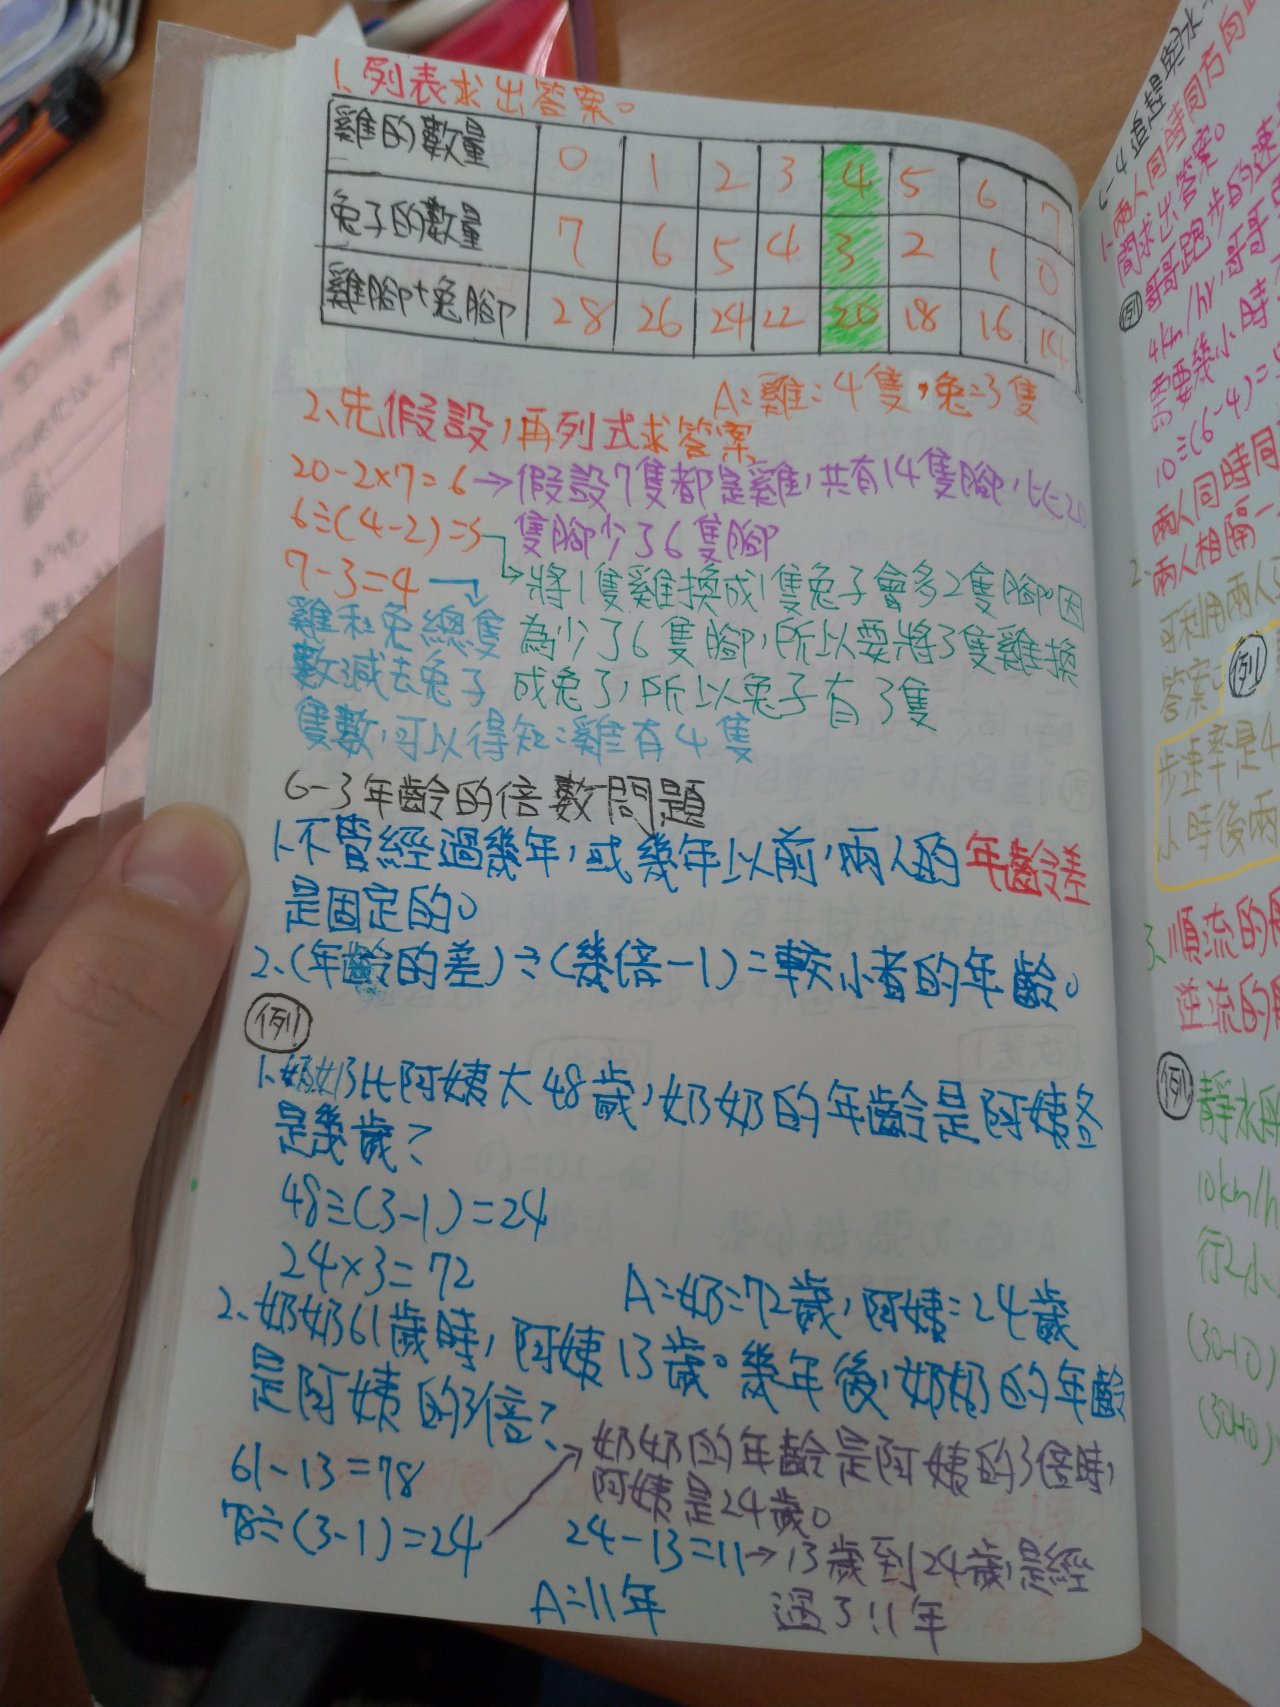 1、列表求出答案。
雞的數量 0 1 2 3 4 5 6 7
兔子的數量 7 6 5 4 3 2 1 0
雞腳+兔腳 28 26 24 22 20 18 16 14
A:雞:4隻,兔:3隻
2、先假設,再列式求答案
20-2×7=6→假設7隻都是雞,共有14隻腳,比20
隻腳少了6隻腳
6÷(4-2)=3
→將1隻雞換成1隻兔子會多2隻腳。因
為少了6隻腳,所以要將3隻雞換
成兔子,所以兔子有3隻
7-3=4→
雞和兔總隻
數減去兔子
隻數,可以得知:雞有4隻
6-3年齡的倍數問題
1、不管經過幾年,或幾年以前,兩人的年齡差
是固定的。
2、(年齡的差)÷(幾倍-1)=較小者的年齡。
例
1、奶奶比阿姨大48歲,奶奶的年齡是阿姨各
是幾歲?
48÷(3-1)=24
24×3=72
A:奶:72歲,阿姨:24歲
2、奶奶61歲時,阿姨13歲。幾年後,奶奶的年齡
是阿姨的3倍?
61-13=78
78÷(3-1)=24
奶奶的年齡是阿姨的3倍時,
阿姨是24歲。
24-13=11→13歲到24歲,是經
過了11年
A:11年
6-4追趕與水
1、兩人同時同方向
間求出答案。
例 哥哥跑步的速
4km/hr,哥哥
需要幾小時
10÷(6-4)=
兩人同時同
兩人相隔一
2、
可利用兩人
答案
例
步速率是4
小時後兩
3、順流的
逆流的
例 靜水
10km/h
行2小
(30-10)
(30+10)